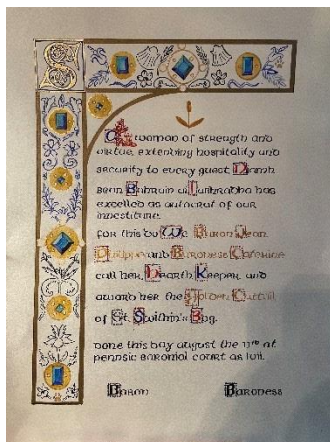 S
A woman of strength and
virtue, extending hospitality and
security to every guest. Niamh
has
excelled as autocrat of our
investiture.
for this do We Baron Jean
Philippe and Baroness Caterine
call her Hearth Keeper and
award her the Golden Cattail
of St. Swithin's Bog.
Done this day August the 11th at
pennsic Baronial court as lvii.
Baron Baroness